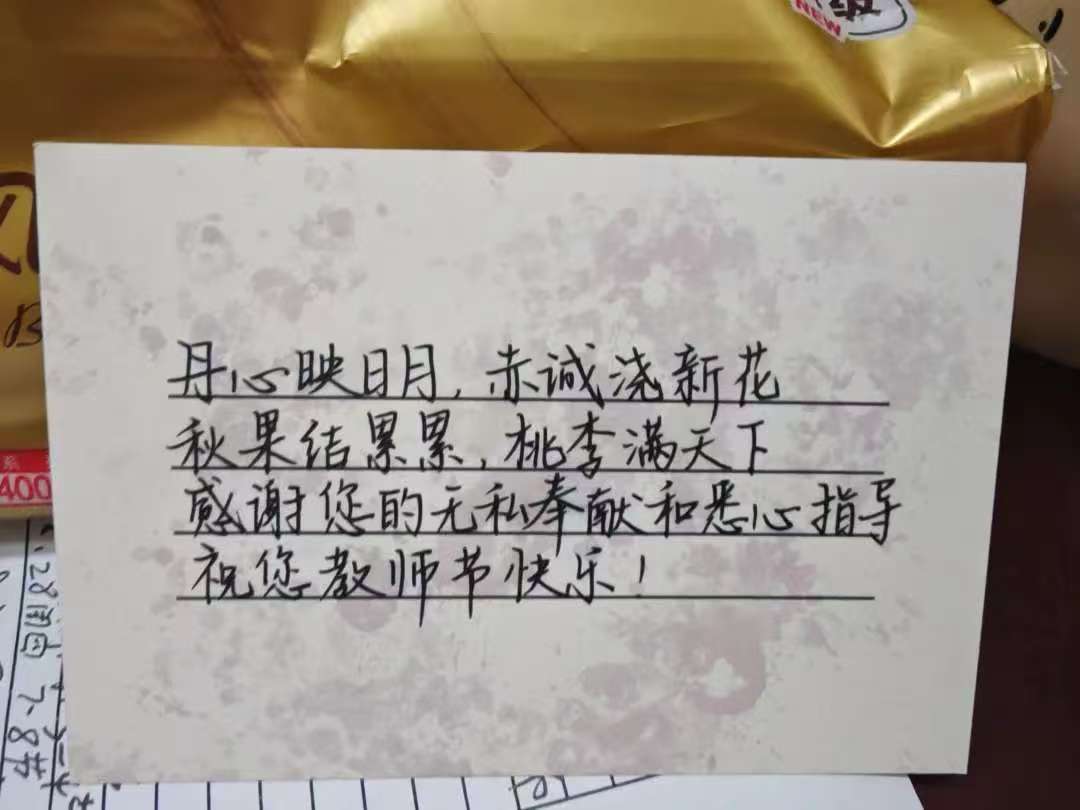 丹心映日月,赤诚浇新花
秋果结累累,桃李满天下
感谢您的无私奉献和悉心指导
祝您教师节快乐!
NEW
级
400
28周四 7-8节